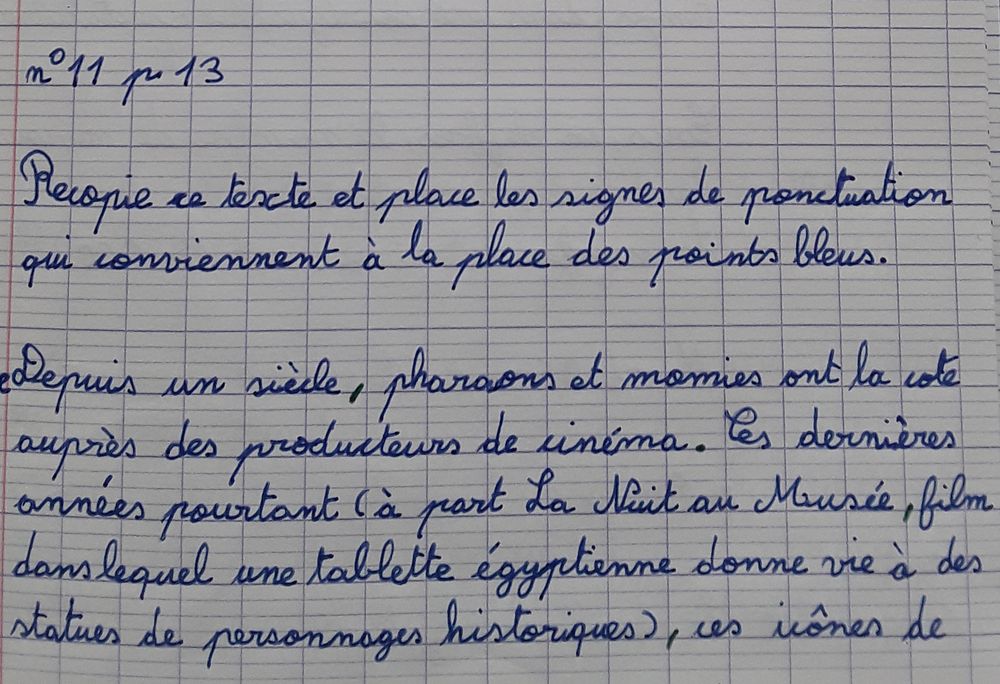 n°11 p 13
Recopie ce texte et place les signes de ponctuation
qui conviennent à la place des points bleus.
Depuis un siècle, pharaons et momies ont la cote
auprès des producteurs de cinéma. Ces dernières
années pourtant (à part La Nuit au Musée, film
dans lequel une tablette égyptienne donne vie à des
statues de personnages historiques), ces icônes de